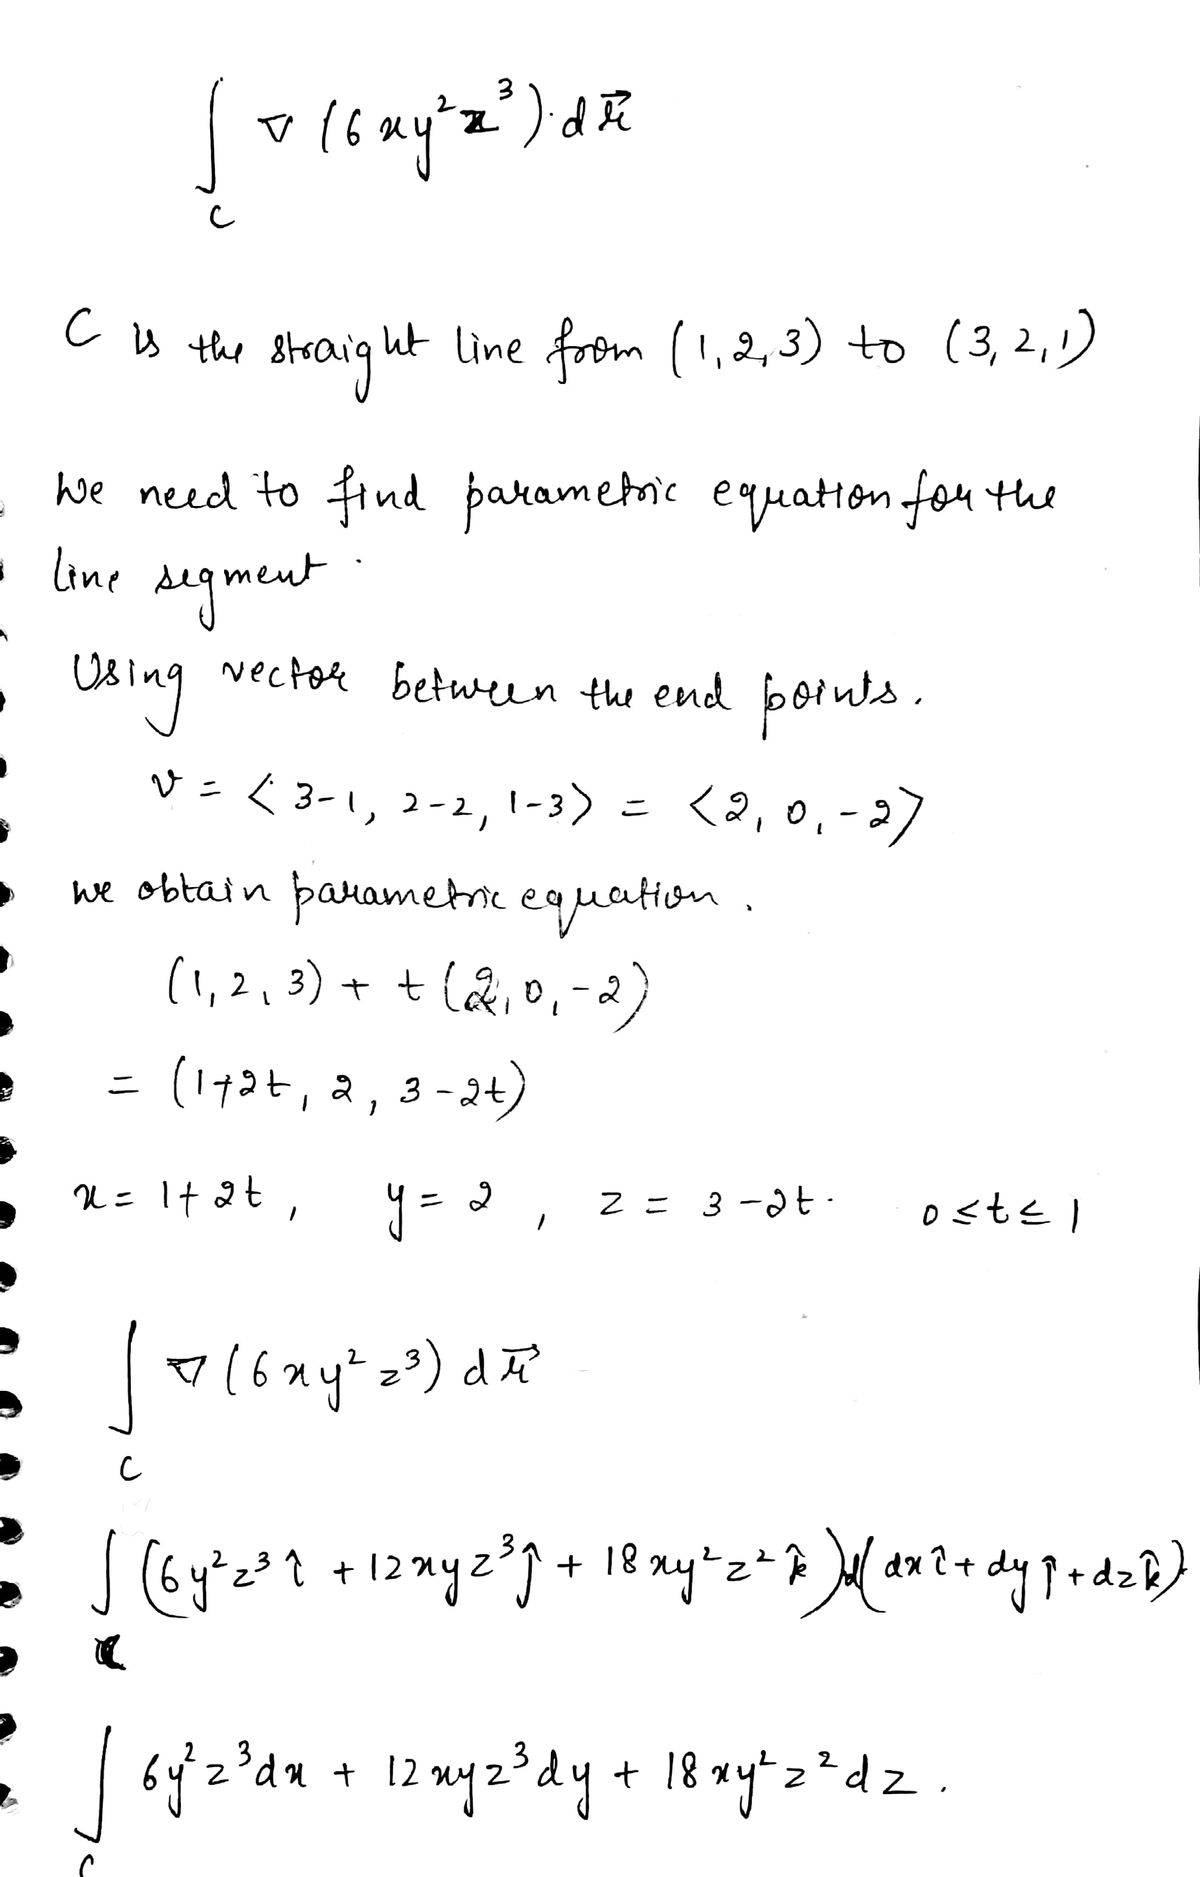 ∫_C ∇(6xy²z³)·dr⃗
C is the straight line from (1,2,3) to (3,2,1)
We need to find parametric equation for the
line segment.
Using vector between the end points.
v = <3-1, 2-2, 1-3> = <2, 0, -2>
we obtain parametric equation.
(1,2,3) + t(2,0,-2)
= (1+2t, 2, 3-2t)
x = 1+2t, y = 2, z = 3-2t. 0≤t≤1
∫_C ∇(6xy²z³) dr⃗
∫_C (6y²z³ î + 12xyz³ ĵ + 18xy²z² k̂)·(dx î + dy ĵ + dz k̂)
∫_C 6y²z³dx + 12xyz³dy + 18xy²z²dz.